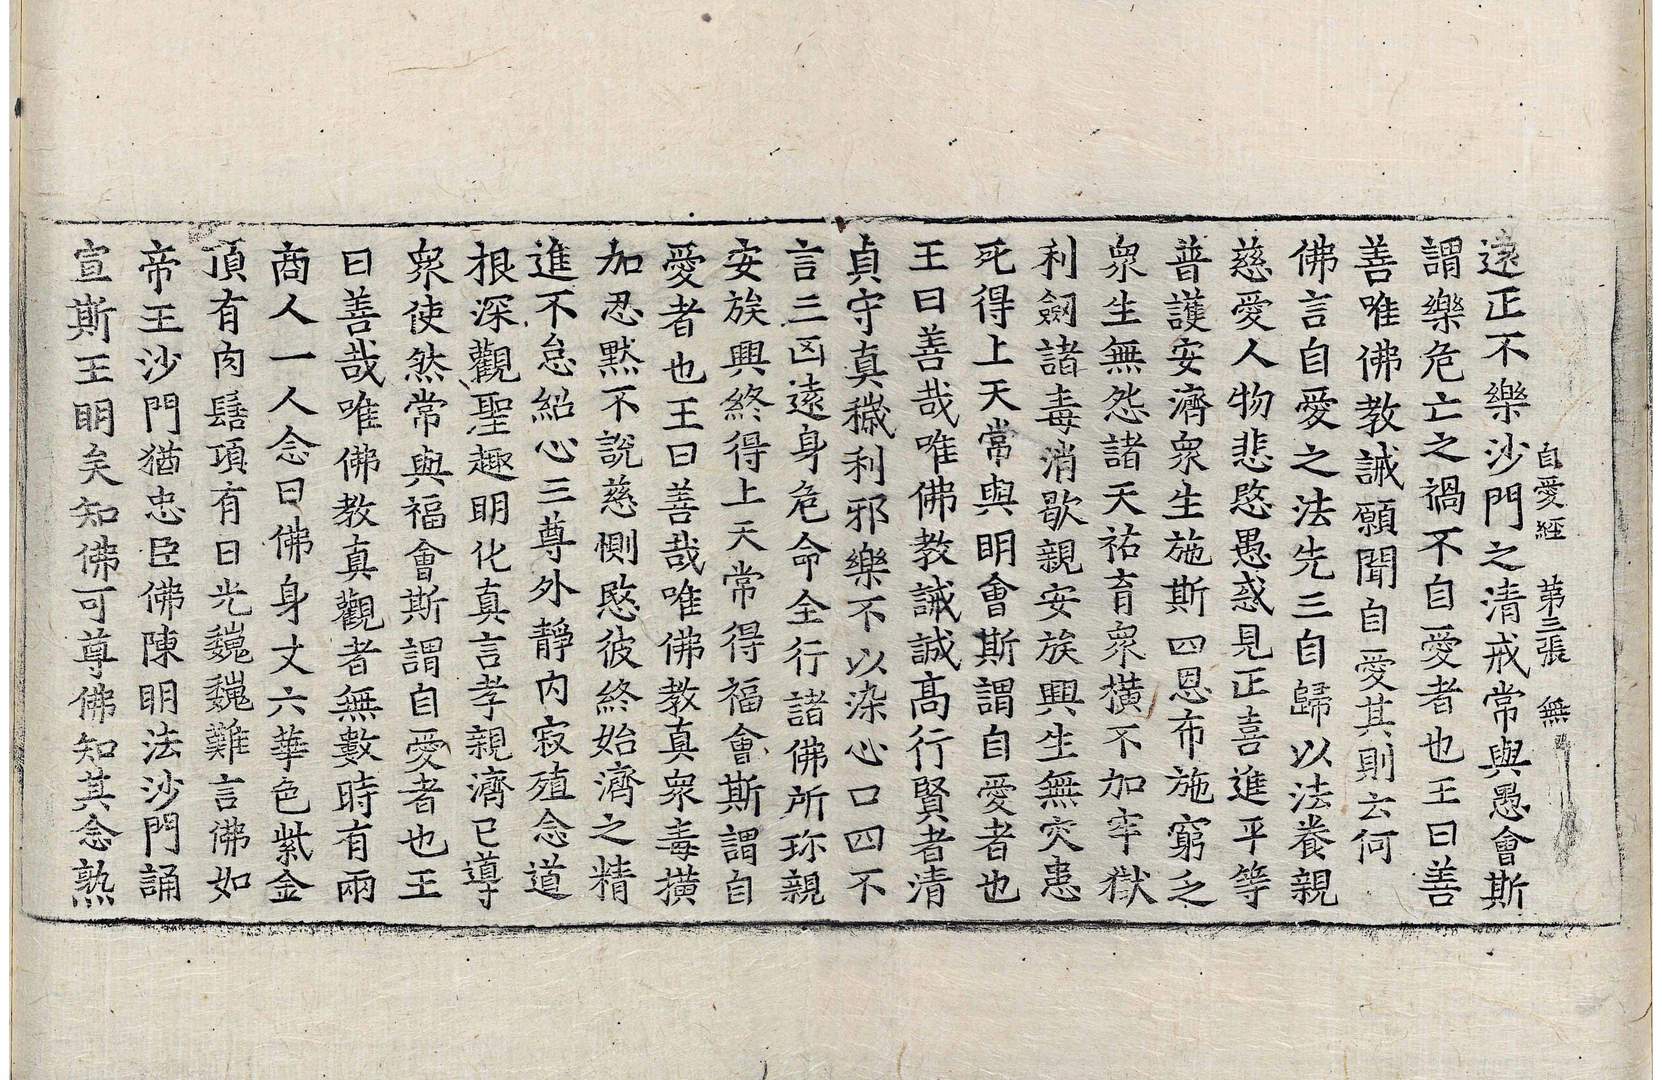 自愛經 第三張 無
遠正不樂沙門之清戒常與愚會斯
謂樂危亡之禍不自愛者也王曰善
善唯佛教誡願聞自愛其則云何
佛言自愛之法先三自歸以法養親
慈愛人物悲愍愚惑見正喜進平等
普護安濟衆生施斯四恩布施窮乏
衆生無怨諸天祐育衆橫不加牢獄
利劒諸毒消歇親安族興生無灾患
死得上天常與明會斯謂自愛者也
王曰善哉唯佛教誡誠高行賢者清
貞守真穢利邪樂不以染心口四不
言三凶遠身危命全行諸佛所珎親
安族興終得上天常得福會斯謂自
愛者也王曰善哉唯佛教真衆毒撗
加忍默不說慈惻愍彼終始濟之精
進不怠紹心三尊外靜内寂殖念道
根深觀聖趣明化真言孝親濟已導
衆使然常與福會斯謂自愛者也王
曰善哉唯佛教真觀者無數時有兩
商人一人念曰佛身丈六華色紫金
頂有肉髻項有日光巍巍難言佛如
帝王沙門猶忠臣佛陳明法沙門誦
宣斯王明矣知佛可尊佛知其念熟